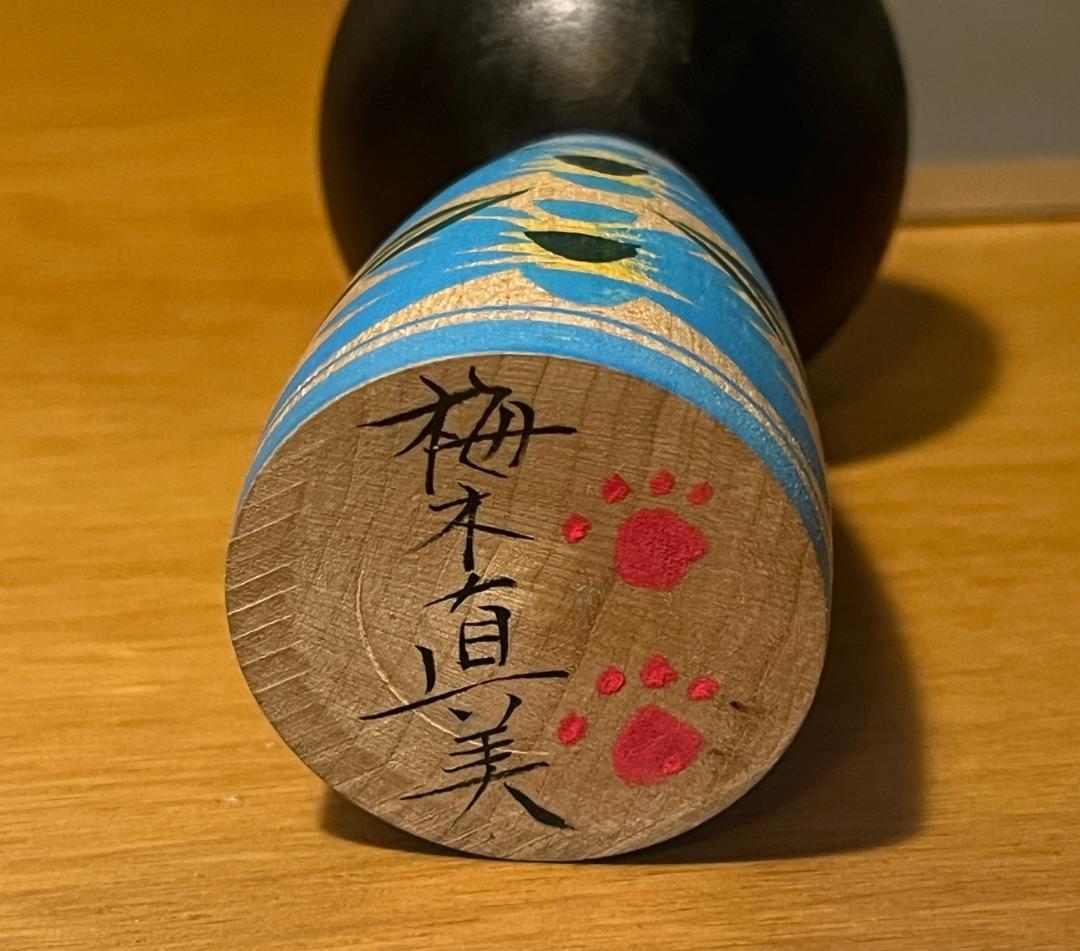 梅木直美